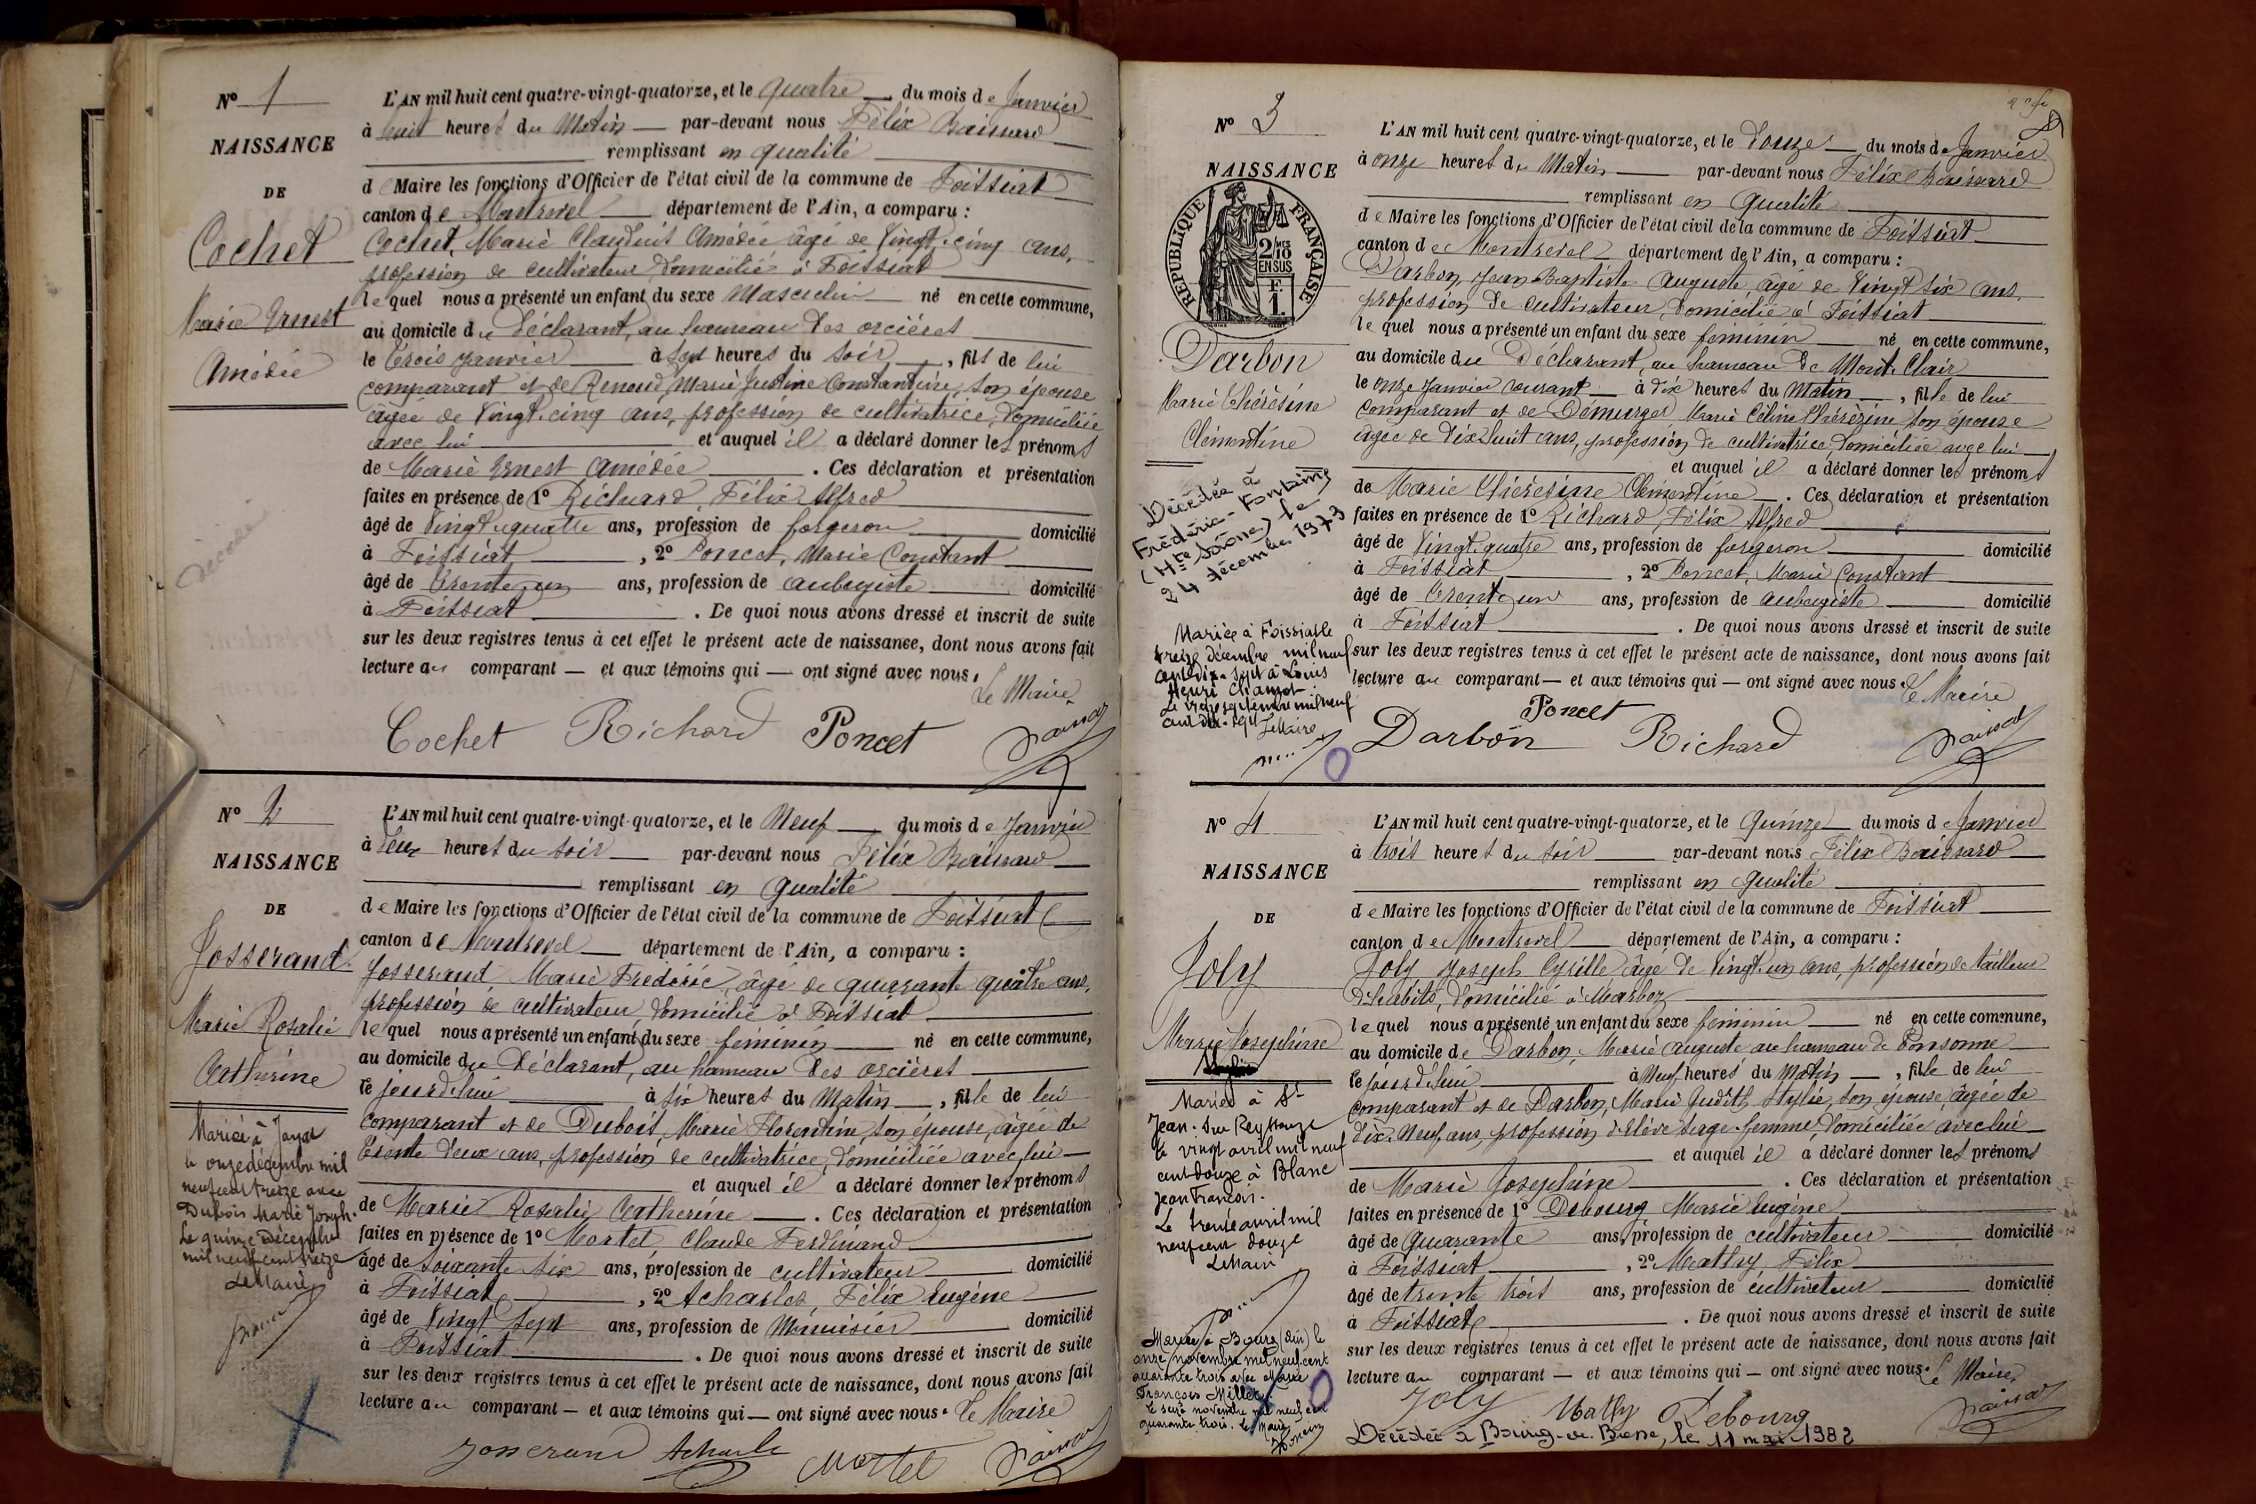 Nº 1
NAISSANCE
DE
Cochet
Marie Ernest
Amédée
L'AN mil huit cent quatre-vingt-quatorze, et le quatre du mois de Janvier
à huit heures du Matin par-devant nous Félix Baissard
remplissant en qualité
de Maire les fonctions d'Officier de l'état civil de la commune de Foissiat
canton de Montrevel département de l'Ain, a comparu :
Cochet, Marie Claude Amédée âgé de vingt-cinq ans,
profession de cultivateur domicilié à Foissiat
lequel nous a présenté un enfant du sexe Masculin né en cette commune,
au domicile du déclarant, au hameau des orcières
le trois janvier à sept heures du soir, fils de lui
comparant et de Renoud, Marie Justine Constantine, son épouse
âgée de vingt-cinq ans, profession de cultivatrice, domiciliée
avec lui et auquel il a déclaré donner les prénoms
de Marie Ernest Amédée. Ces déclaration et présentation
faites en présence de 1º Richard, Félix Alfred
âgé de vingt-quatre ans, profession de forgeron domicilié
à Foissiat, 2º Poncet, Marie Constant
âgé de trente-un ans, profession de aubergiste domicilié
à Foissiat. De quoi nous avons dressé et inscrit de suite
sur les deux registres tenus à cet effet le présent acte de naissance, dont nous avons fait
lecture au comparant — et aux témoins qui — ont signé avec nous.
Le Maire
Cochet Richard Poncet
Nº 2
NAISSANCE
DE
Josserand
Marie Rosalie
Catherine
Mariée à Jayat
le onze décembre mil
neuf cent treize avec
Dubois Marie Joseph.
Le quinze décembre
mil neuf cent treize
Le Maire
L'AN mil huit cent quatre-vingt-quatorze, et le Neuf du mois de Janvier
à deux heures du soir par-devant nous Félix Baissard
remplissant en qualité
de Maire les fonctions d'Officier de l'état civil de la commune de Foissiat
canton de Montrevel département de l'Ain, a comparu :
Josserand Marie Frédéric, âgé de quarante quatre ans,
profession de cultivateur, domicilié à Foissiat
lequel nous a présenté un enfant du sexe féminin né en cette commune,
au domicile du déclarant, au hameau des orcières
le jourd'hui à six heures du Matin, fille de lui
comparant et de Dubois, Marie Florentine, son épouse, âgée de
trente deux ans, profession de cultivatrice, domiciliée avec lui
et auquel il a déclaré donner les prénoms
de Marie Rosalie Catherine. Ces déclaration et présentation
faites en présence de 1º Mortel Claude Ferdinand
âgé de soixante six ans, profession de cultivateur domicilié
à Foissiat, 2º Acharles, Félix Eugène
âgé de vingt sept ans, profession de Menuisier domicilié
à Foissiat. De quoi nous avons dressé et inscrit de suite
sur les deux registres tenus à cet effet le présent acte de naissance, dont nous avons fait
lecture au comparant — et aux témoins qui — ont signé avec nous. Le Maire
Josserand Acharles Mortel
Nº 3
NAISSANCE
RÉPUBLIQUE FRANÇAISE
2/10 MES
EN SUS
F.
1.
Darbon
Marie Thérésine
Clémentine
Décédée à
Frédéric-Fontaine
(Hte Saône) le
24 décembre 1973
Mariée à Foissiat le
treize décembre mil neuf
cent dix-sept à Louis
Henri
Le Maire
L'AN mil huit cent quatre-vingt-quatorze, et le Douze du mois de Janvier
à onze heures du Matin par-devant nous Félix Baissard
remplissant en qualité
de Maire les fonctions d'Officier de l'état civil de la commune de Foissiat
canton de Montrevel département de l'Ain, a comparu :
Darbon, Jean Baptiste Auguste, âgé de vingt six ans,
profession de cultivateur, domicilié à Foissiat
lequel nous a présenté un enfant du sexe féminin né en cette commune,
au domicile du Déclarant, au hameau de Mont-Clair
le onze janvier courant à dix heures du Matin, fille de lui
comparant et de Démurger Marie Céline Thérèzine son épouse
âgée de dix huit ans, profession de cultivatrice, domiciliée avec lui
et auquel il a déclaré donner les prénoms
de Marie Thérésine Clémentine. Ces déclaration et présentation
faites en présence de 1º Richard, Félix Alfred
âgé de vingt-quatre ans, profession de forgeron domicilié
à Foissiat, 2º Poncet, Marie Constant
âgé de trente-un ans, profession de aubergiste domicilié
à Foissiat. De quoi nous avons dressé et inscrit de suite
sur les deux registres tenus à cet effet le présent acte de naissance, dont nous avons fait
lecture au comparant — et aux témoins qui — ont signé avec nous. Le Maire
Poncet
Darbon Richard
Nº 4
NAISSANCE
DE
Joly
Marie Joséphine
Mariée à St
Jean-sur-Reyssouze
le vingt avril mil neuf
cent douze à Blanc
Jean François.
Le trente avril mil
neuf cent douze
Le Maire
Mariée à Bourg (Ain) le
onze novembre mil neuf cent
quarante trois avec Marie
François Millet
Le seize novembre mil neuf cent
quarante trois. Le Maire
L'AN mil huit cent quatre-vingt-quatorze, et le Quinze du mois de Janvier
à trois heures du soir par-devant nous Félix Baissard
remplissant en qualité
de Maire les fonctions d'Officier de l'état civil de la commune de Foissiat
canton de Montrevel département de l'Ain, a comparu :
Joly Joseph Cyrille âgé de vingt-un ans, profession de tailleur
d'habits, domicilié à Marboz
lequel nous a présenté un enfant du sexe féminin né en cette commune,
au domicile de Darbon, Marie Auguste au hameau de Ponsonne
le jourd'hui à Neuf heures du Matin, fille de lui
comparant et de Darbon, Marie Judith Stylie, son épouse, âgée de
dix-Neuf ans, profession d'élève sage-femme, domiciliée avec lui
et auquel il a déclaré donner les prénoms
de Marie Joséphine. Ces déclaration et présentation
faites en présence de 1º Debourg Marie Eugène
âgé de Quarante ans, profession de cultivateur domicilié
à Foissiat, 2º Mathy, Félix
âgé de trente trois ans, profession de cultivateur domicilié
à Foissiat. De quoi nous avons dressé et inscrit de suite
sur les deux registres tenus à cet effet le présent acte de naissance, dont nous avons fait
lecture au comparant — et aux témoins qui — ont signé avec nous. Le Maire
Joly Mathy Debourg
Décédée à Bourg-en-Bresse, le 11 mai 1982